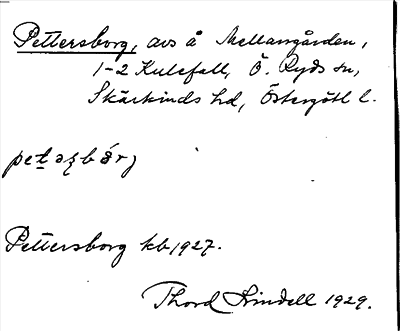 Pettersborg, avs å Mellangården,
1-2 Kulefall, Ö. Ryds sn,
Skärkinds hd, Östergötl l.
Pettersborg kb 1927.
Thord Lindell 1929.